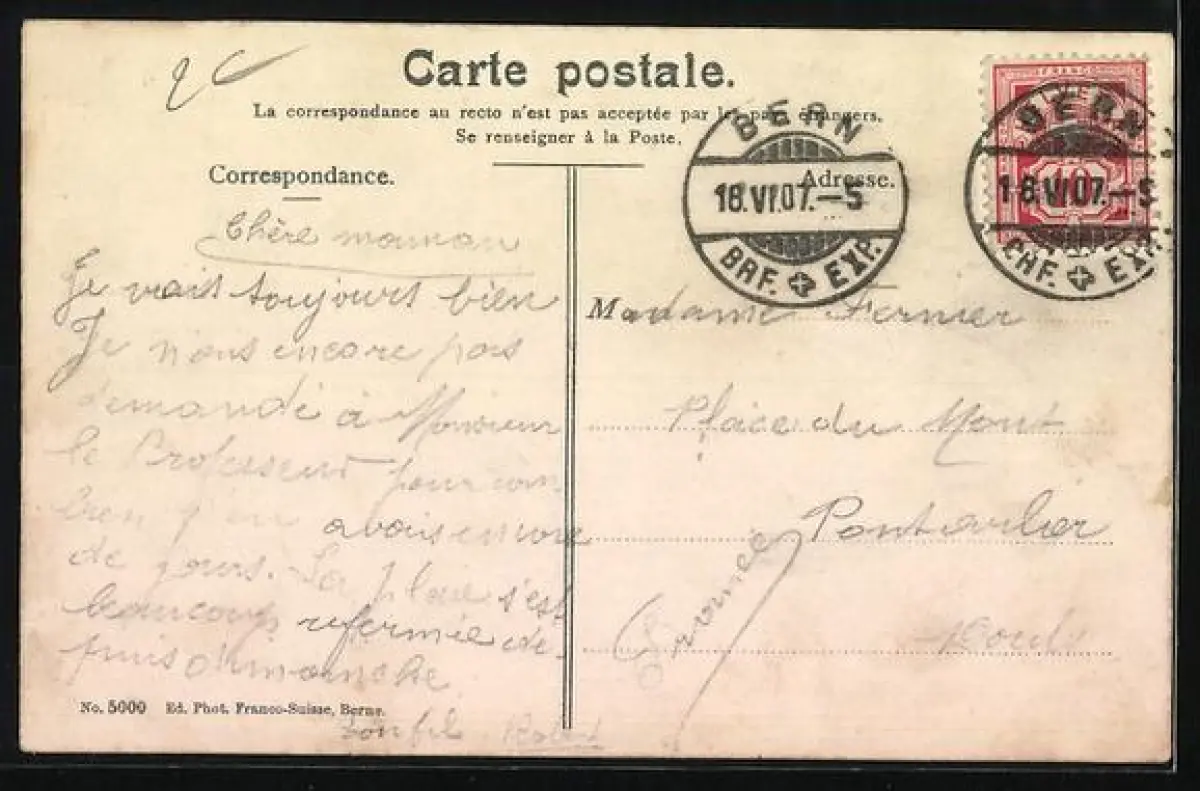 Carte postale.
La correspondance au recto n'est pas acceptée par les pays étrangers.
Se renseigner à la Poste.
Correspondance.
Adresse.
BERN
18.VI.07.–5
BRF. EXP.
FRANCO
10
BERN
18.VI07.–5
BRF. EXP.
Chère maman
Je vais toujours bien
Je nous encore pas
demandé à Monsieur
le Professeur pour com
bien j'en avais encore
de jours. La plaie s'est
beaucoup refermée de-
puis dimanche
ton fil Robert
Madame Fernier
Place du Mont
Pontarlier
Doubs
No. 5000 Ed. Phot. Franco-Suisse, Berne.